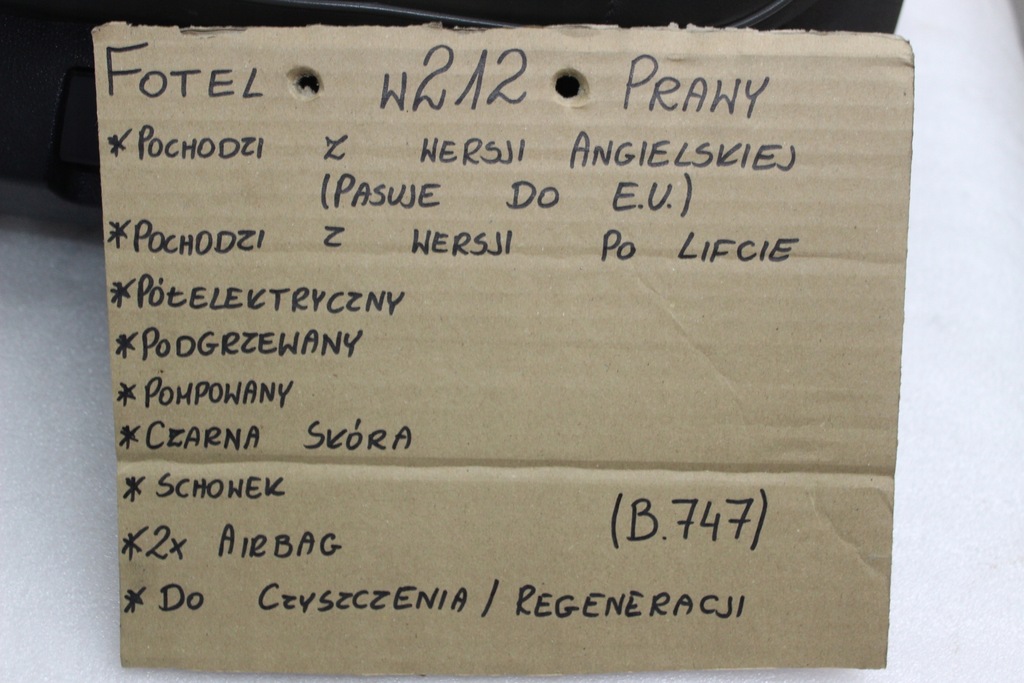 FOTEL W212 PRAWY
*POCHODZI Z WERSJI ANGIELSKIEJ
(PASUJE DO E.U.)
*POCHODZI Z WERSJI PO LIFCIE
*PÓŁELEKTRYCZNY
*PODGRZEWANY
*POMPOWANY
*CZARNA SKÓRA
*SCHOWEK
(B.747)
*2x AIRBAG
*DO CZYSZCZENIA / REGENERACJI